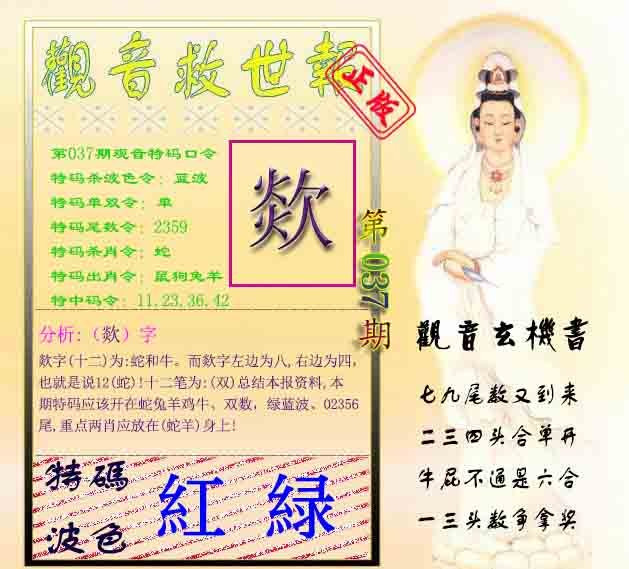 觀音救世報
正版
第037期观音特码口令
特码杀波色令：蓝波
特码单双令：单
特码尾数令：2359
特码杀肖令：蛇
特码出肖令：鼠狗兔羊
特中码令：11.23.36.42
欻
第037期
分析:（欻）字
欻字(十二)为:蛇和牛。而欻字左边为八,右边为四,
也就是说12(蛇)!十二笔为:(双)总结本报资料,本
期特码应该开在蛇兔羊鸡牛、双数，绿蓝波、02356
尾,重点两肖应放在(蛇羊)身上!
特碼
波色
紅 緑
觀音玄機書
七九尾数又到来
二三四头合单开
牛屁不通是六合
一三头数争拿奖